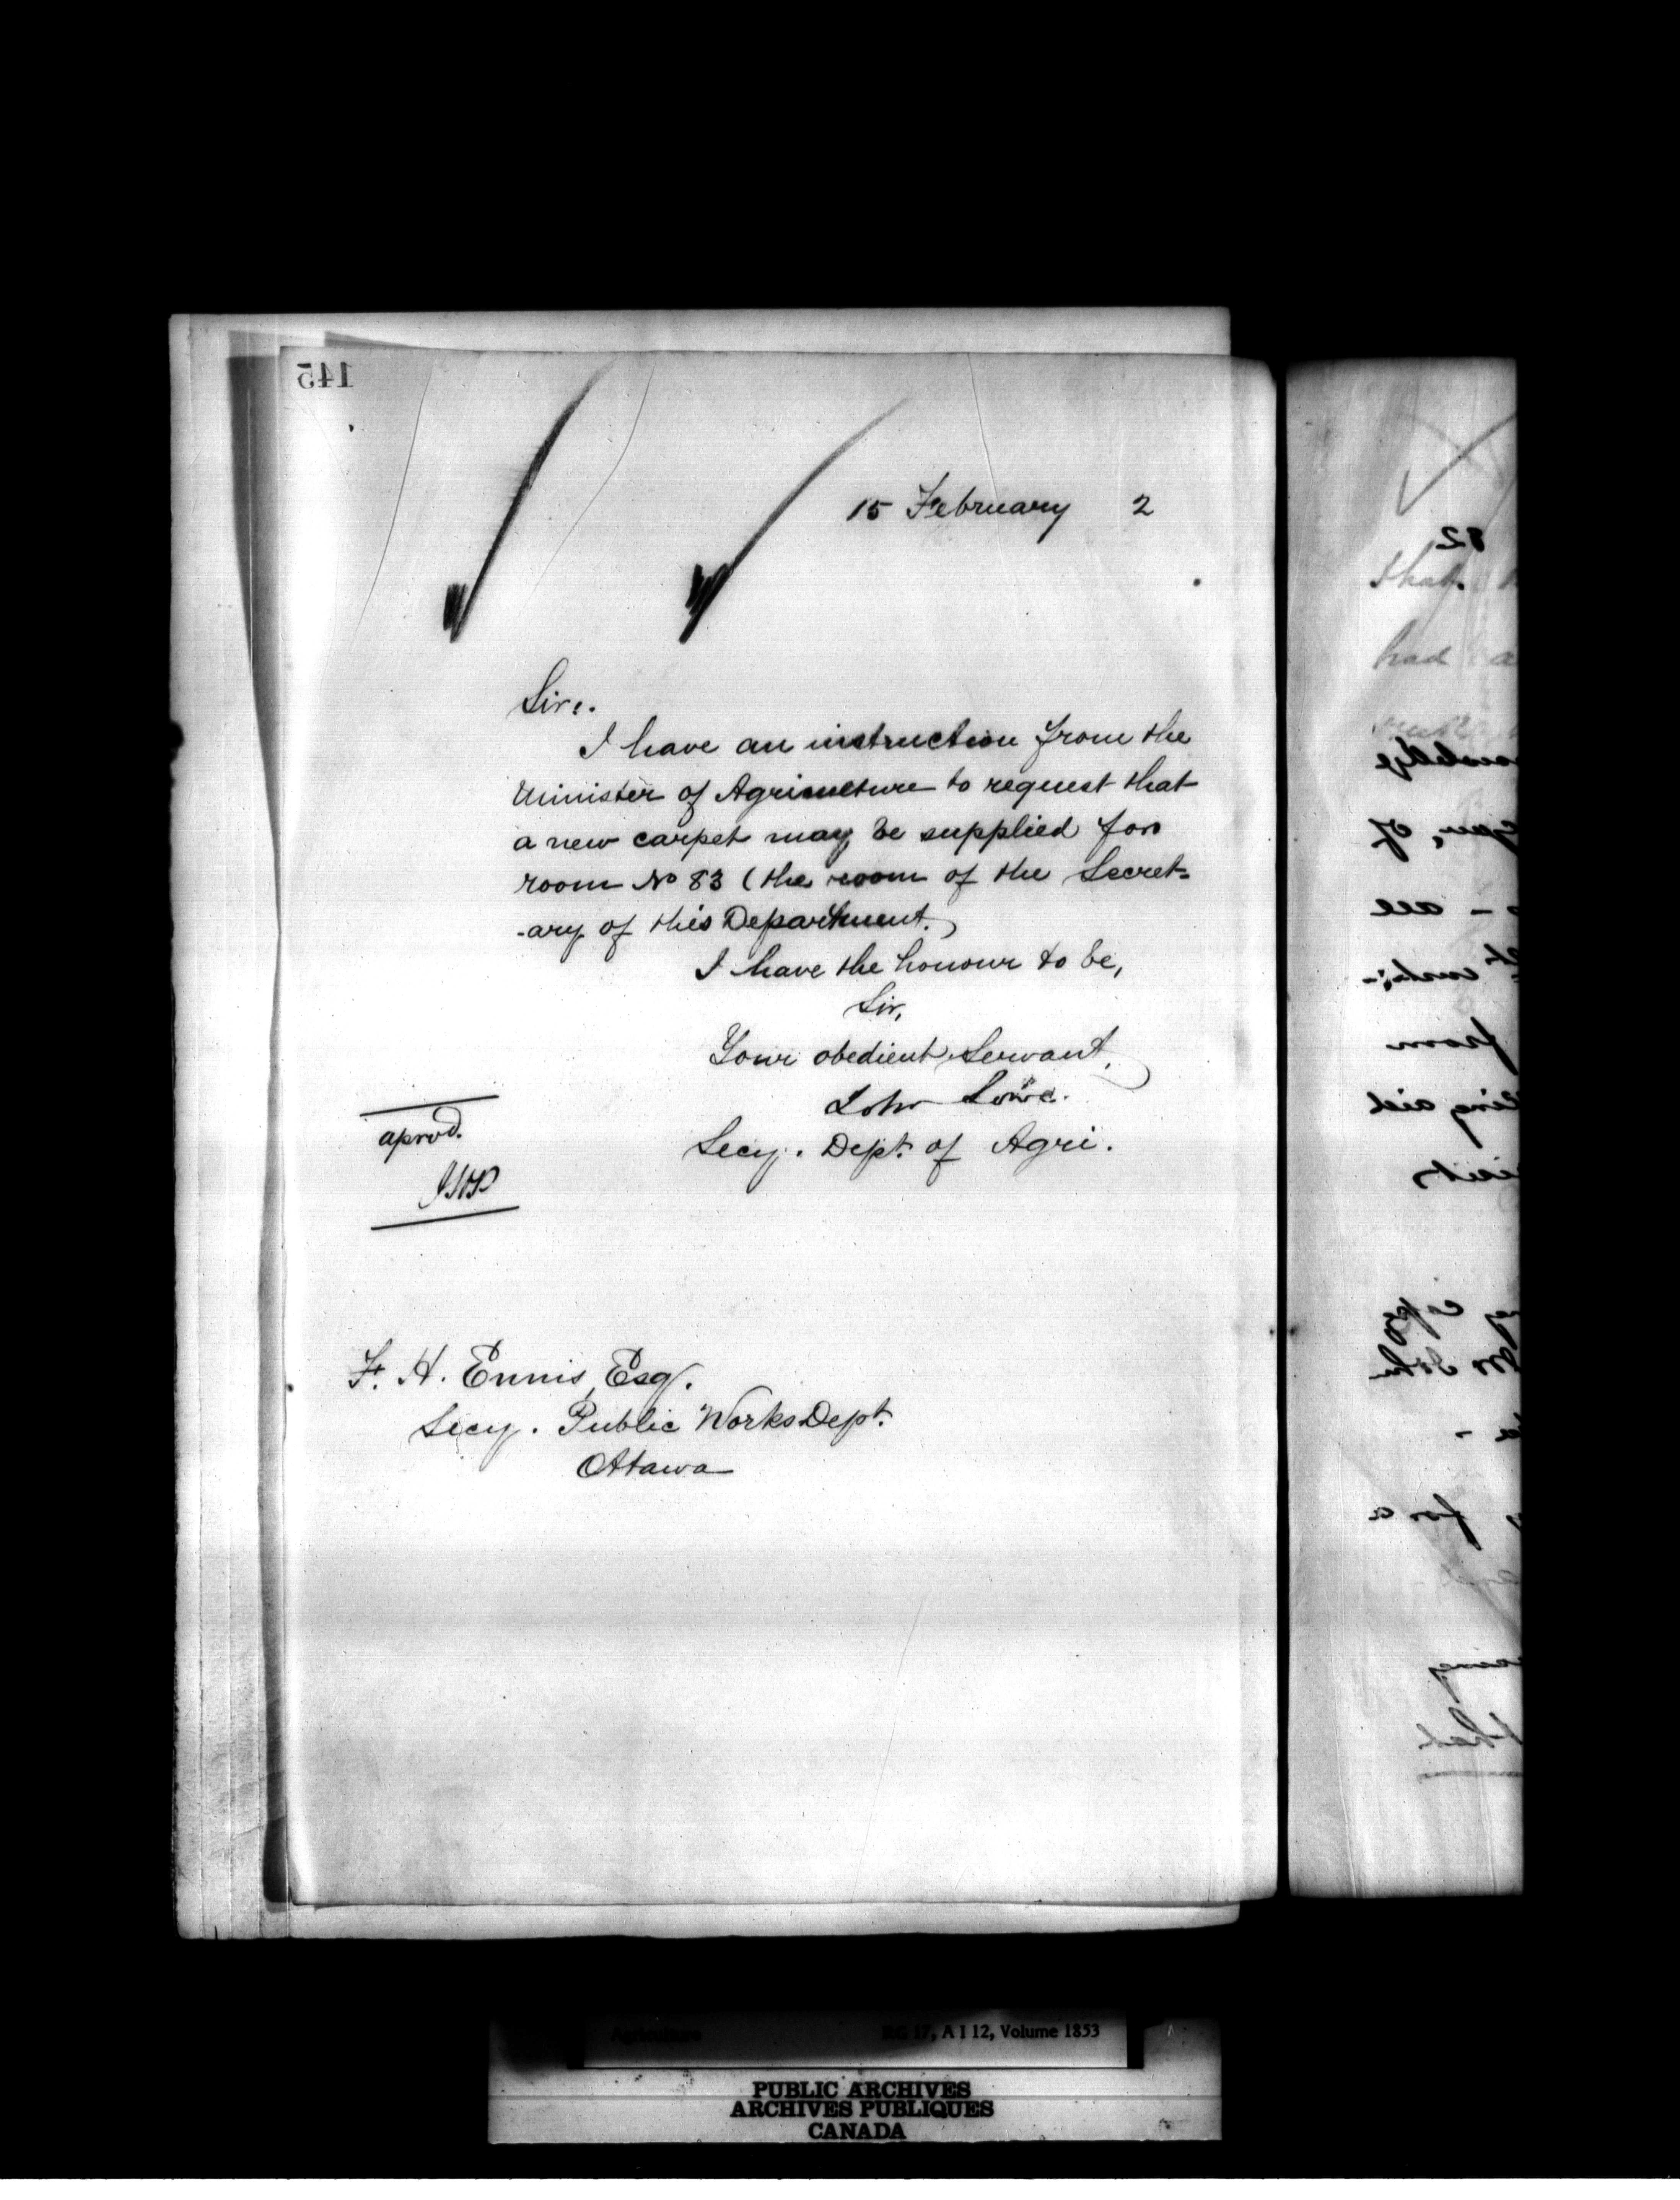 145
15 February 2
Sir,.
I have an instruction from the
Minister of Agriculture to request that
a new carpet may be supplied for
room No 83 (the room of the Secret-
-ary of this Department.)
I have the honour to be,
Sir,
Your obedient Servant,
John Lowe.
Secy. Dept. of Agri.
aprvd.
F. H. Ennis, Esq.
Secy. Public Works Dept.
Ottawa
82
that.
had a
of
- all
from
ing aid
copy
for a
that
Agriculture RG 17, A I 12, Volume 1853
PUBLIC ARCHIVES
ARCHIVES PUBLIQUES
CANADA